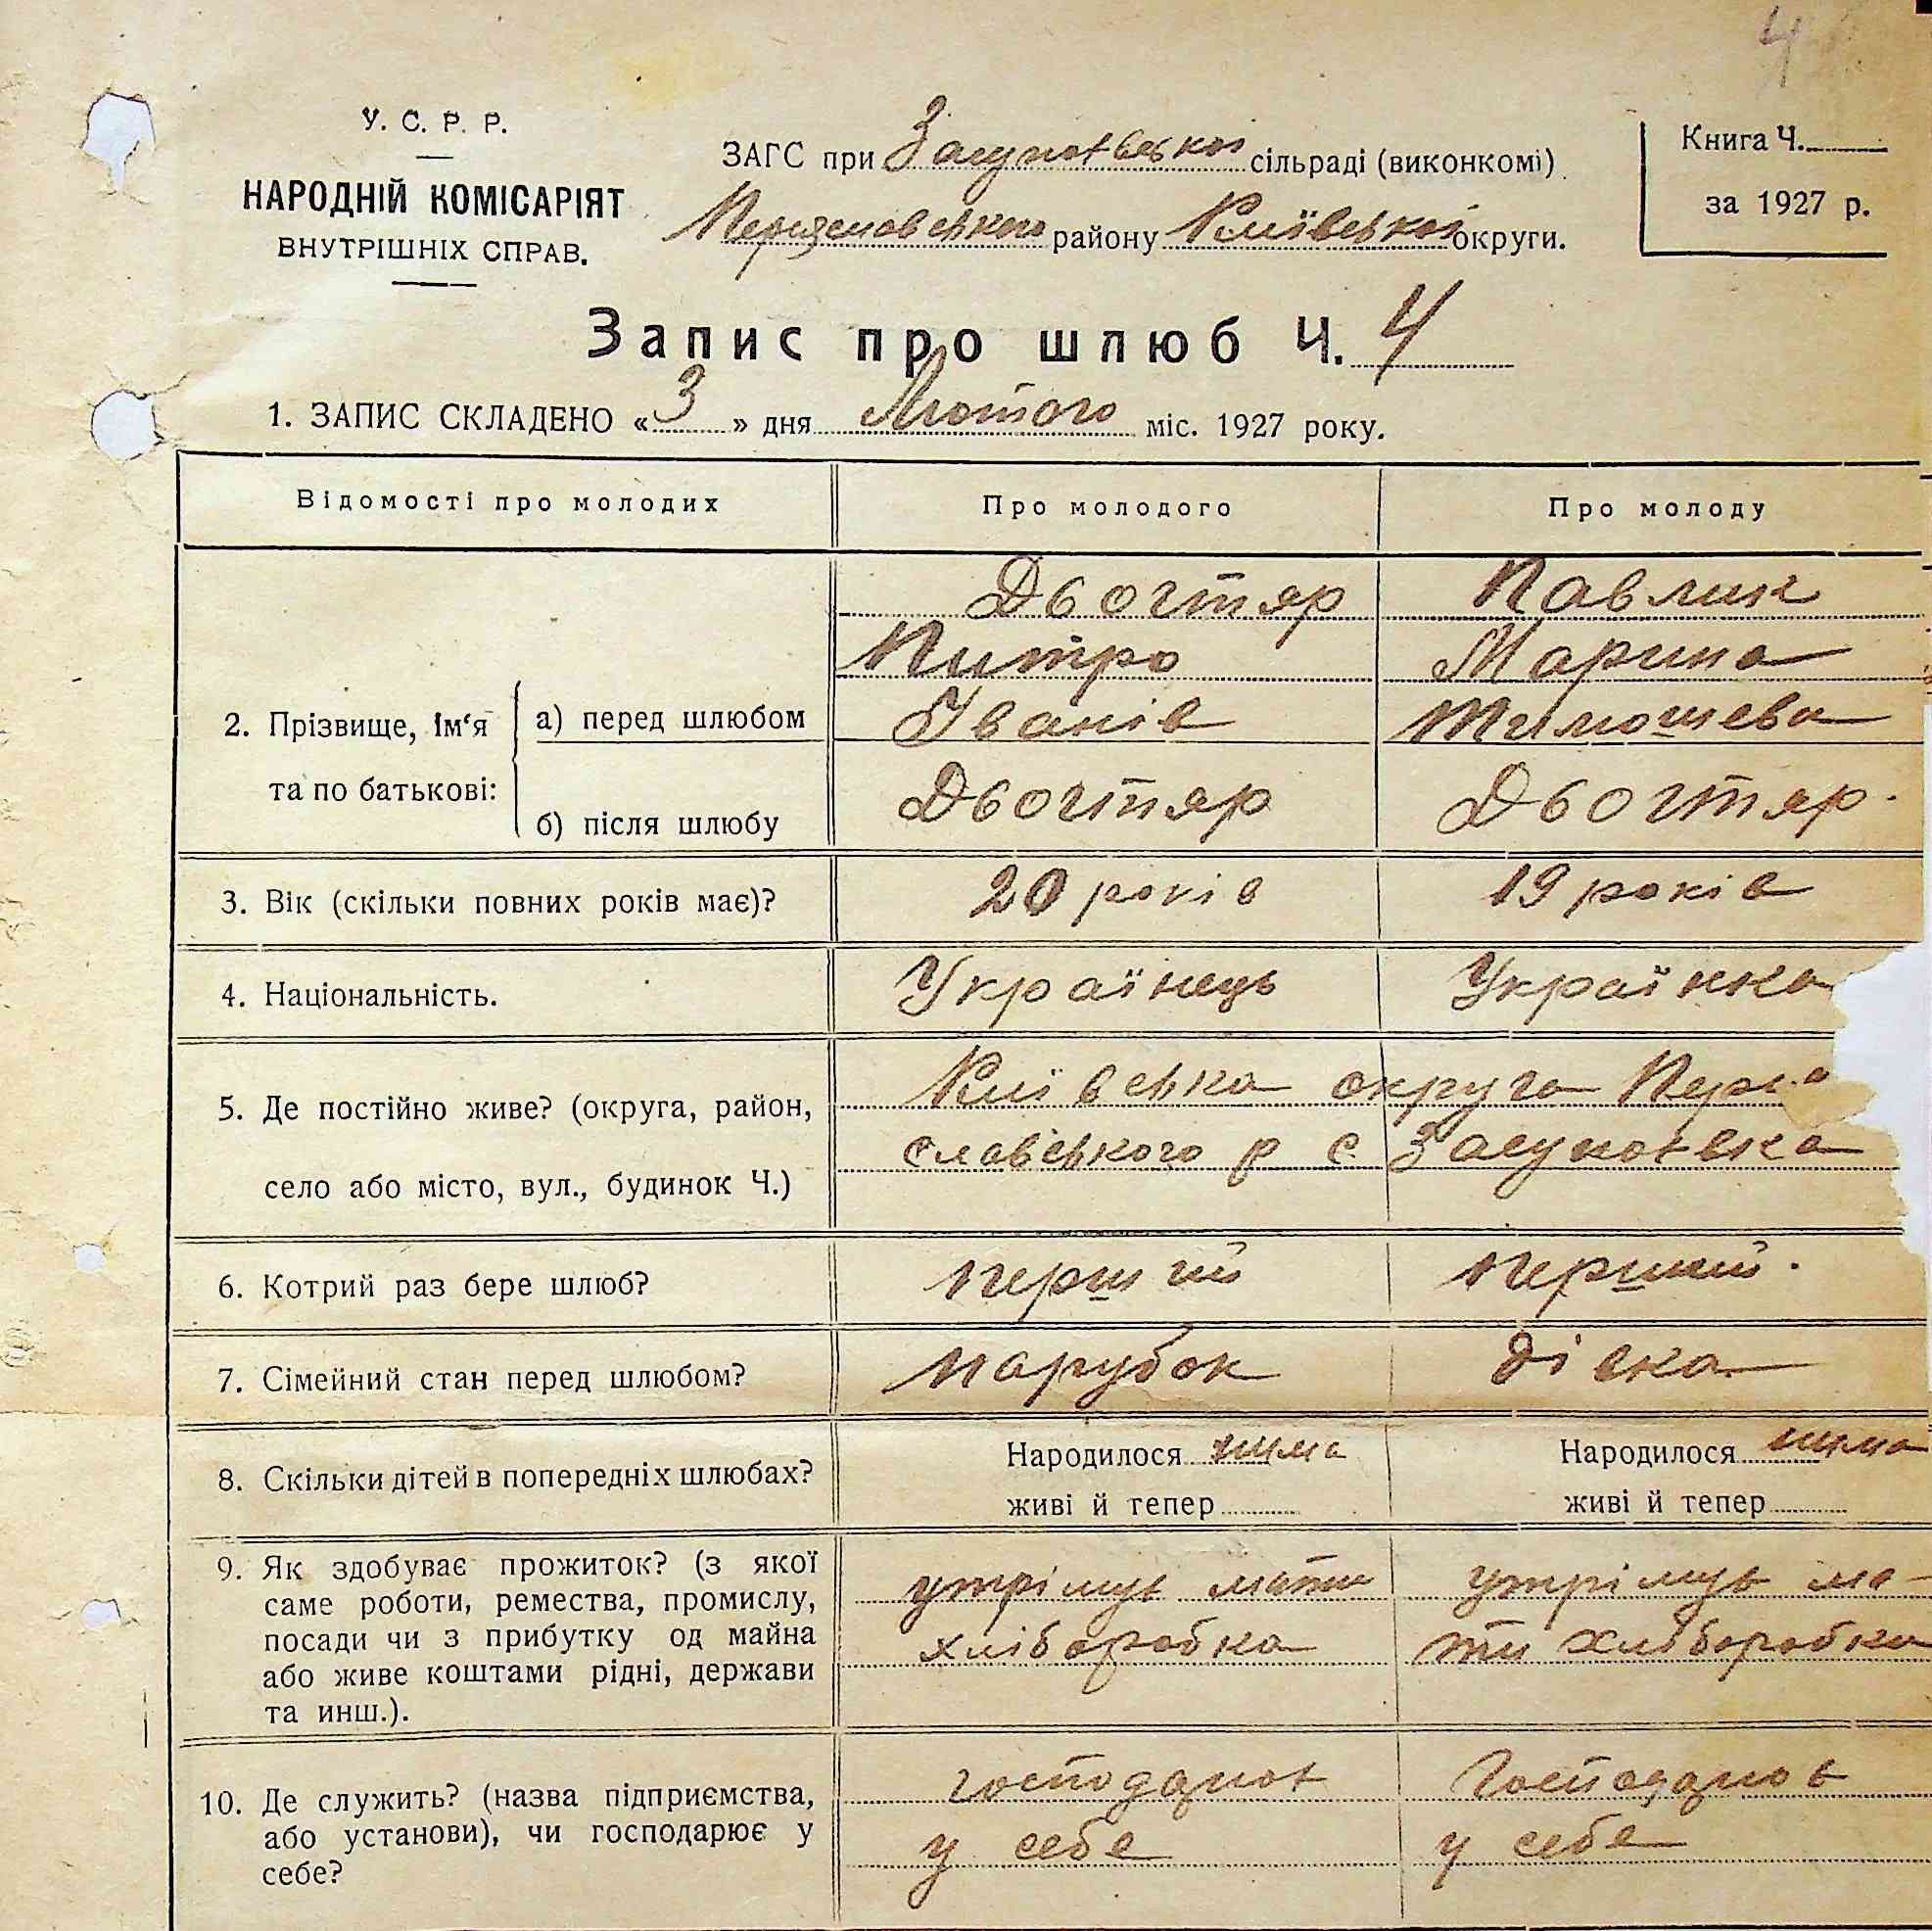 4
У. С. Р. Р.
НАРОДНІЙ КОМІСАРІЯТ
ВНУТРІШНІХ СПРАВ.
ЗАГС при Засупоєвськой сільраді (виконкомі)
району Київської округи.
Книга Ч.
за 1927 р.
Запис про шлюб Ч. 4
1. ЗАПИС СКЛАДЕНО «3» дня Лютого міс. 1927 року.
Відомості про молодих
Про молодого
Про молоду
2. Прізвище, ім‘я та по батькові:
а) перед шлюбом
Двогтяр
Питро
Іванів
Павлик
Марина
Тимошева
б) після шлюбу
Двогтяр
Двогтяр.
3. Вік (скільки повних років має)?
20 років
19 років
4. Національність.
Українець
Українка
5. Де постійно живе? (округа, район,
село або місто, вул., будинок Ч.)
Київська округа
славського р с Засупоєвка
6. Котрий раз бере шлюб?
перший
перший.
7. Сімейний стан перед шлюбом?
парубок
дівка
8. Скільки дітей в попередніх шлюбах?
Народилося нима
живі й тепер
Народилося нима
живі й тепер
9. Як здобуває прожиток? (з якої
саме роботи, ремества, промислу,
посади чи з прибутку од майна
або живе коштами рідні, держави
та инш.).
утрімує мати
хліборобка
утрімує ма-
ти хліборобка
10. Де служить? (назва підприємства,
або установи), чи господарює у
себе?
господарює
у себе
Господарює
у себе